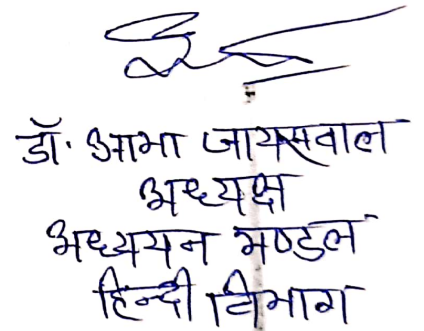 डॉ. आभा जायसवाल
अध्यक्ष
अध्ययन मण्डल
हिन्दी विभाग